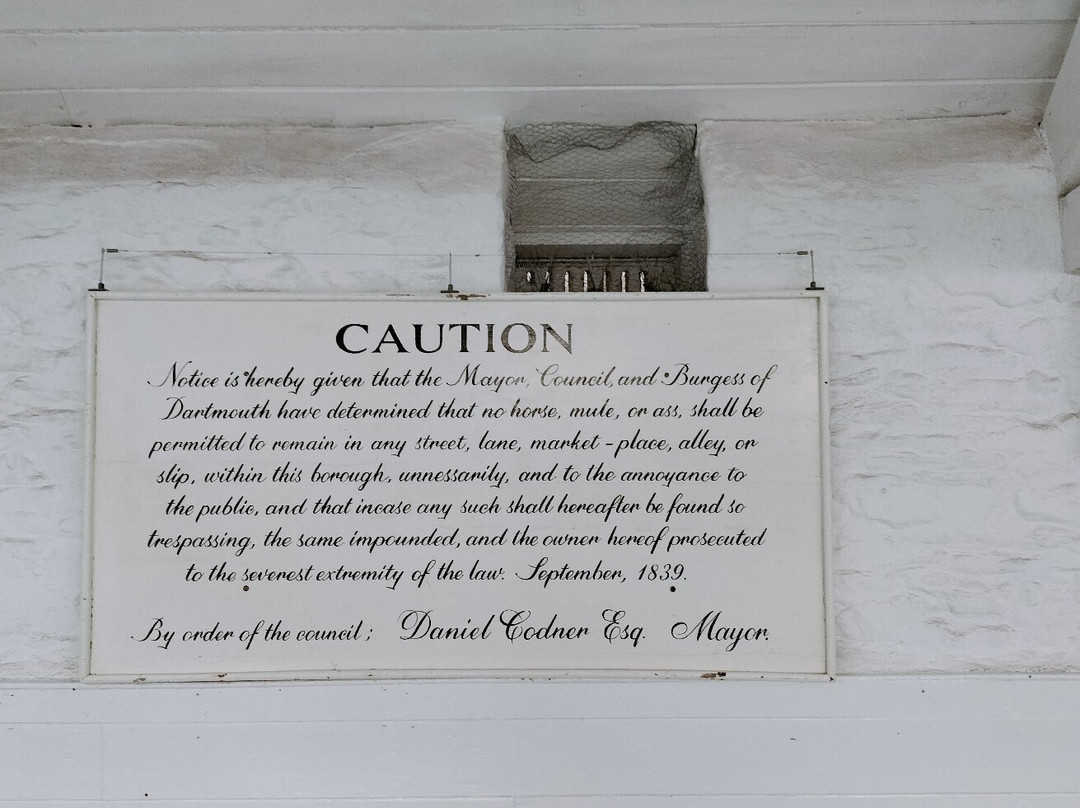 CAUTION
Notice is hereby given that the Mayor, Council, and Burgess of
Dartmouth have determined that no horse, mule, or ass, shall be
permitted to remain in any street, lane, market - place, alley, or
slip, within this borough, unnessarily, and to the annoyance to
the public, and that incase any such shall hereafter be found so
trespassing, the same impounded, and the owner hereof prosecuted
to the severest extremity of the law. September, 1839.
By order of the council; Daniel Codner Esq. Mayor.